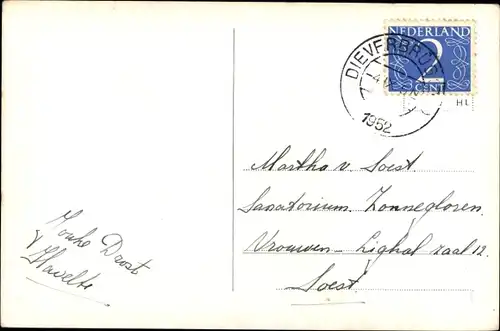 NEDERLAND
2
CENT
DIEVERBRUG
1952
HL
Martha v. Soest
Sanatorium Zonnegloren
Vrouwen - Lighal zaal 12
Soest
Drost
Havelte